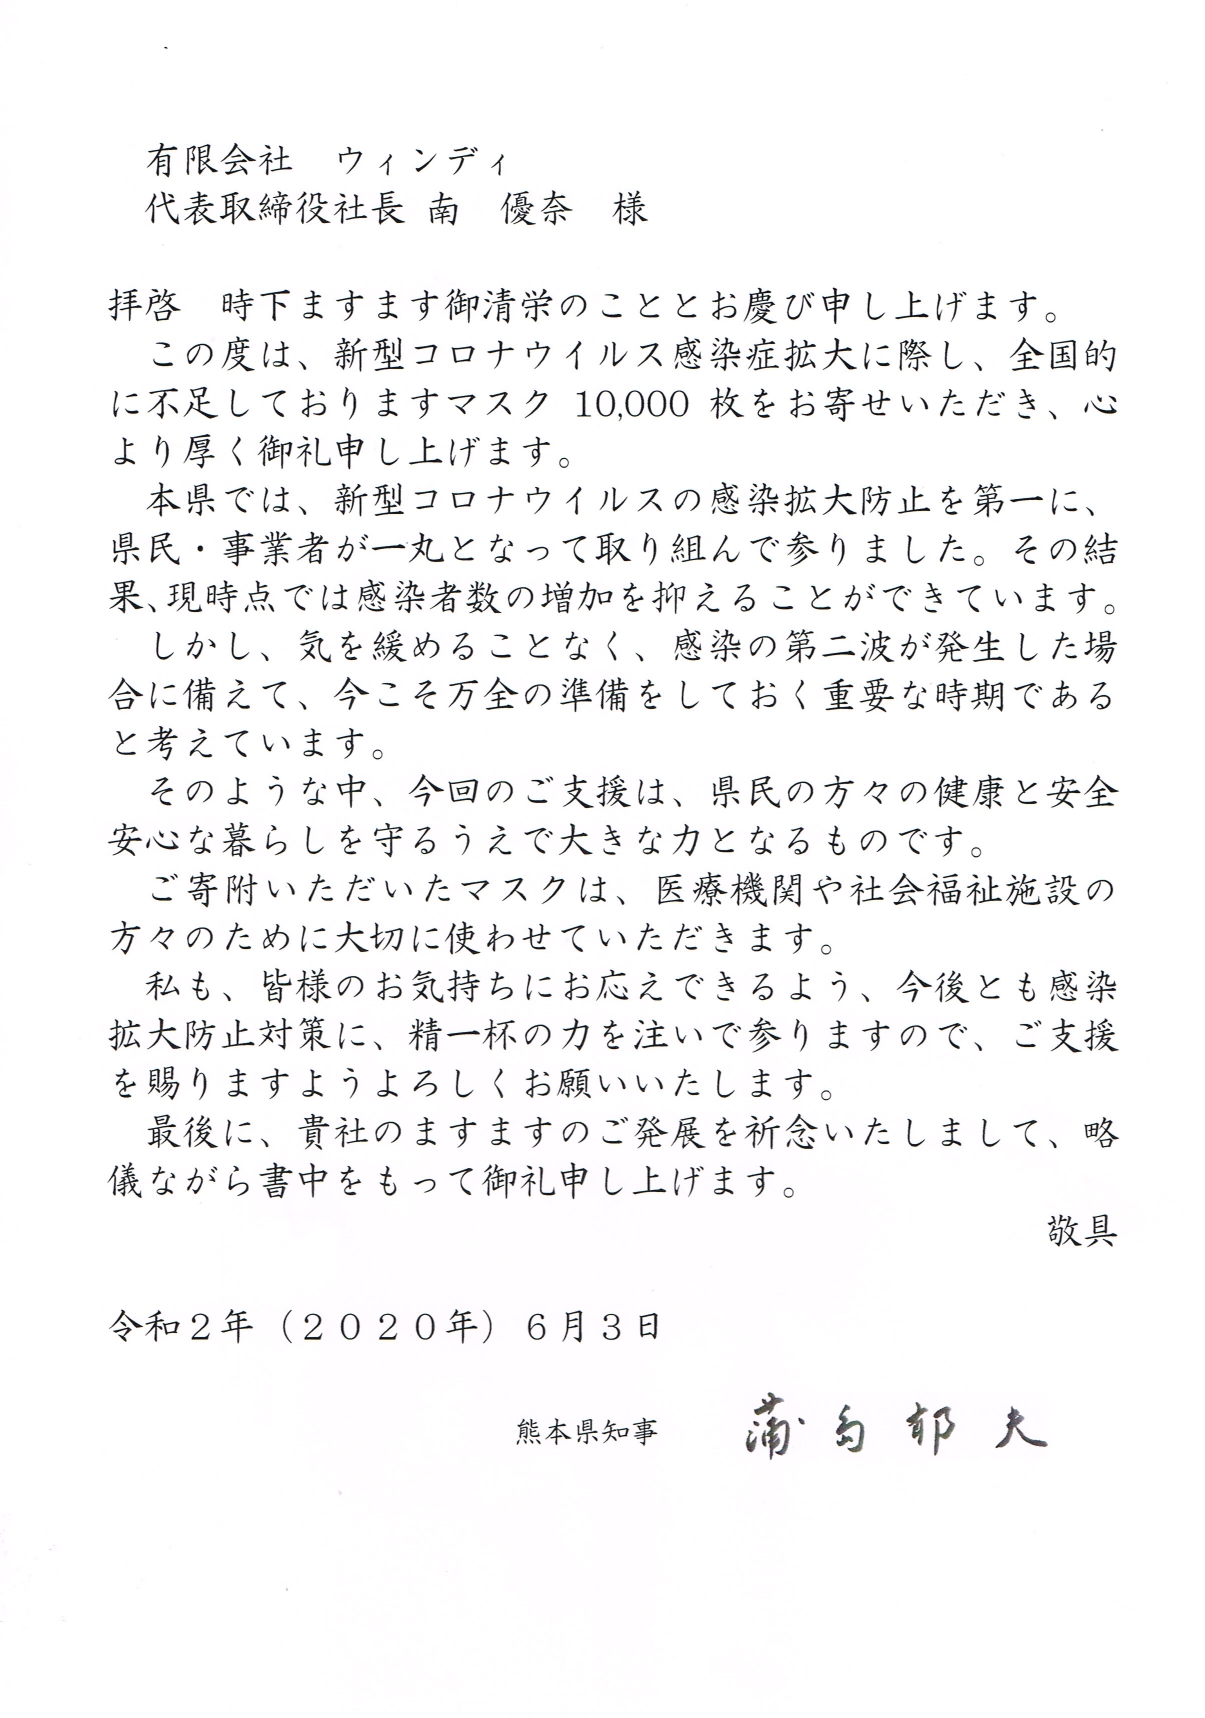 有限会社　ウィンディ
代表取締役社長 南　優奈　様
拝啓　時下ますます御清栄のこととお慶び申し上げます。
　この度は、新型コロナウイルス感染症拡大に際し、全国的
に不足しておりますマスク 10,000 枚をお寄せいただき、心
より厚く御礼申し上げます。
　本県では、新型コロナウイルスの感染拡大防止を第一に、
県民・事業者が一丸となって取り組んで参りました。その結
果、現時点では感染者数の増加を抑えることができています。
　しかし、気を緩めることなく、感染の第二波が発生した場
合に備えて、今こそ万全の準備をしておく重要な時期である
と考えています。
　そのような中、今回のご支援は、県民の方々の健康と安全
安心な暮らしを守るうえで大きな力となるものです。
　ご寄附いただいたマスクは、医療機関や社会福祉施設の
方々のために大切に使わせていただきます。
　私も、皆様のお気持ちにお応えできるよう、今後とも感染
拡大防止対策に、精一杯の力を注いで参りますので、ご支援
を賜りますようよろしくお願いいたします。
　最後に、貴社のますますのご発展を祈念いたしまして、略
儀ながら書中をもって御礼申し上げます。
敬具
令和２年（２０２０年）６月３日
熊本県知事　蒲島郁夫